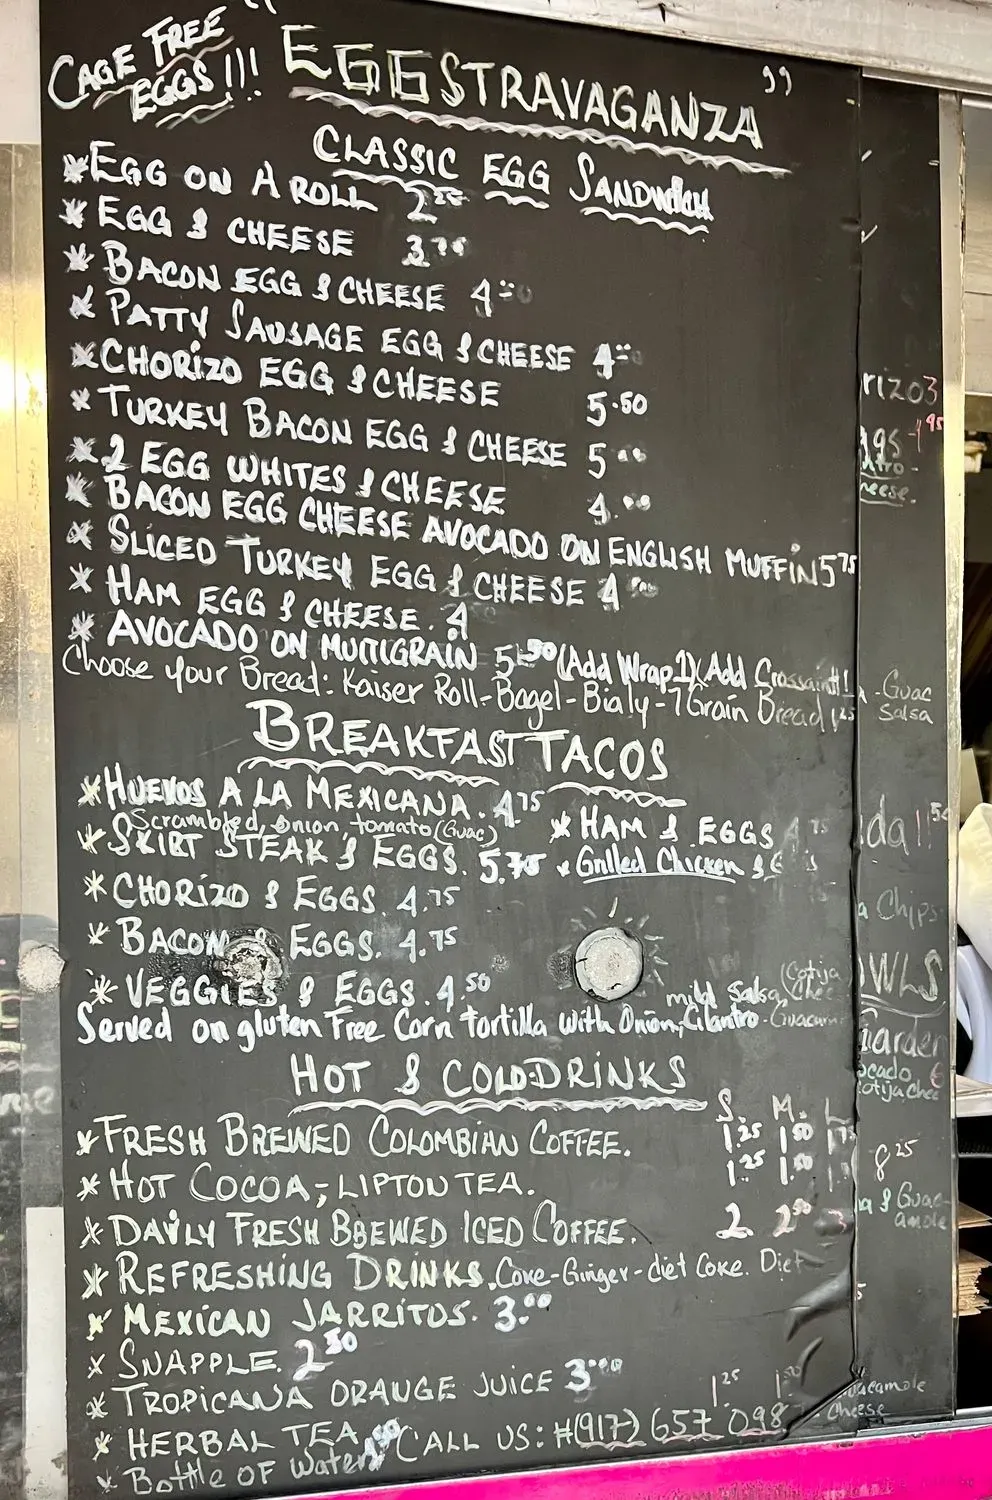 CAGE FREE EGGS!!!
"EGGSTRAVAGANZA"
CLASSIC EGG SANDWICH
* EGG ON A ROLL 2.25
* EGG & CHEESE 3.75
* BACON EGG & CHEESE 4.00
* PATTY SAUSAGE EGG & CHEESE 4.00
* CHORIZO EGG & CHEESE 5.50
* TURKEY BACON EGG & CHEESE 5.00
* 2 EGG WHITES & CHEESE 4.00
* BACON EGG CHEESE AVOCADO ON ENGLISH MUFFIN 5.75
* SLICED TURKEY EGG & CHEESE 4.00
* HAM EGG & CHEESE. 4
* AVOCADO ON MULTIGRAIN 5.50 (Add Wrap.1)(Add Crossaint!1
Choose your Bread: Kaiser Roll-Bagel-Bialy-7 Grain Bread 1.25
BREAKFAST TACOS
* HUEVOS A LA MEXICANA. 4.75
Scrambled, onion, tomato (Guac)
* HAM & EGGS 4.75
* SKIRT STEAK & EGGS. 5.75
* Grilled Chicken &
* CHORIZO & EGGS 4.75
* BACON & EGGS. 4.75
* VEGGIES & EGGS. 4.50
Served on gluten Free Corn Tortilla with Onion, Cilantro-
mild Salsa, (Cotija
HOT & COLD-DRINKS
S. M. L
* FRESH BREWED COLOMBIAN COFFEE. 1.25 1.50 1.75
* HOT COCOA-, LIPTON TEA. 1.25 1.50
* DAILY FRESH BBEWED ICED COFFEE. 2. 2.50 3
* REFRESHING DRINKS. Coke-Ginger-diet Coke. Diet
* MEXICAN JARRITOS. 3.00
* SNAPPLE. 2.50
* TROPICANA ORAUGE JUICE 3.00
* HERBAL TEA. 1.25 1.50
CALL US: #(917) 657 098
* Bottle OF Water
rizo 3
eese.
- Guac
Salsa
da 11.50
a Chips
WLS
Garden
ocado 6
cotija, Chee
8.25
a & Guac-
amole
uacamole
cheese